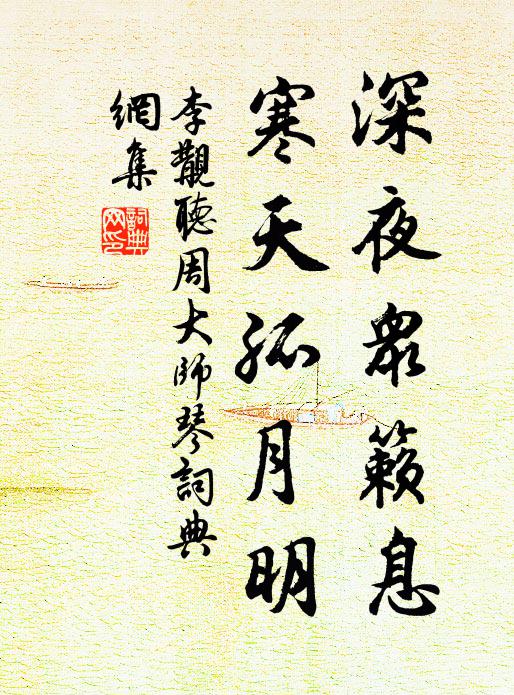 深夜眾籟息
寒天孤月明
李覯聽周大師琴詞典
網集
詞典
網印